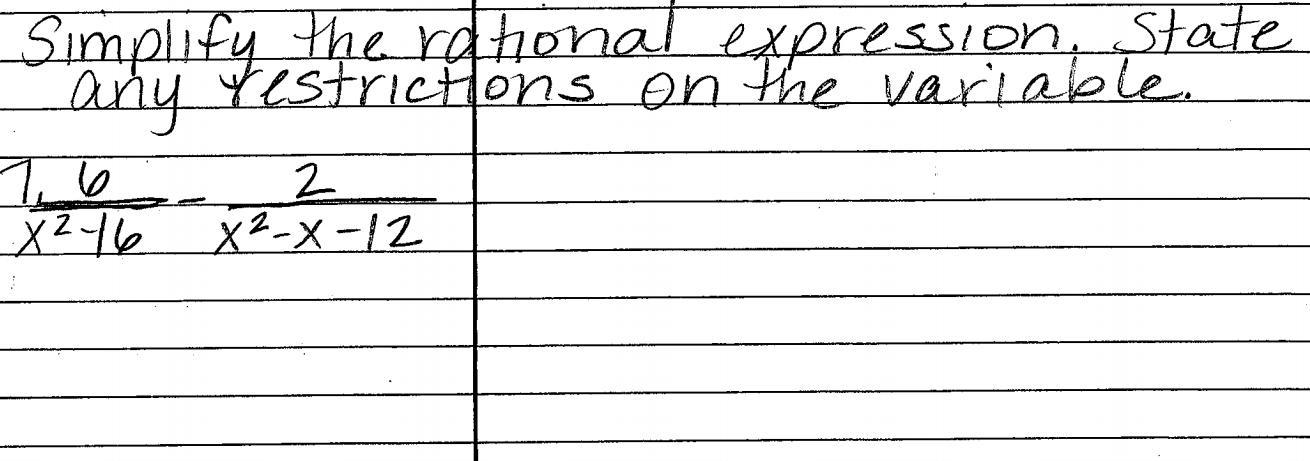 Simplify the rational expression. State
any restrictions on the variable.
7. 6 2
— - —
x²-16 x²-x-12